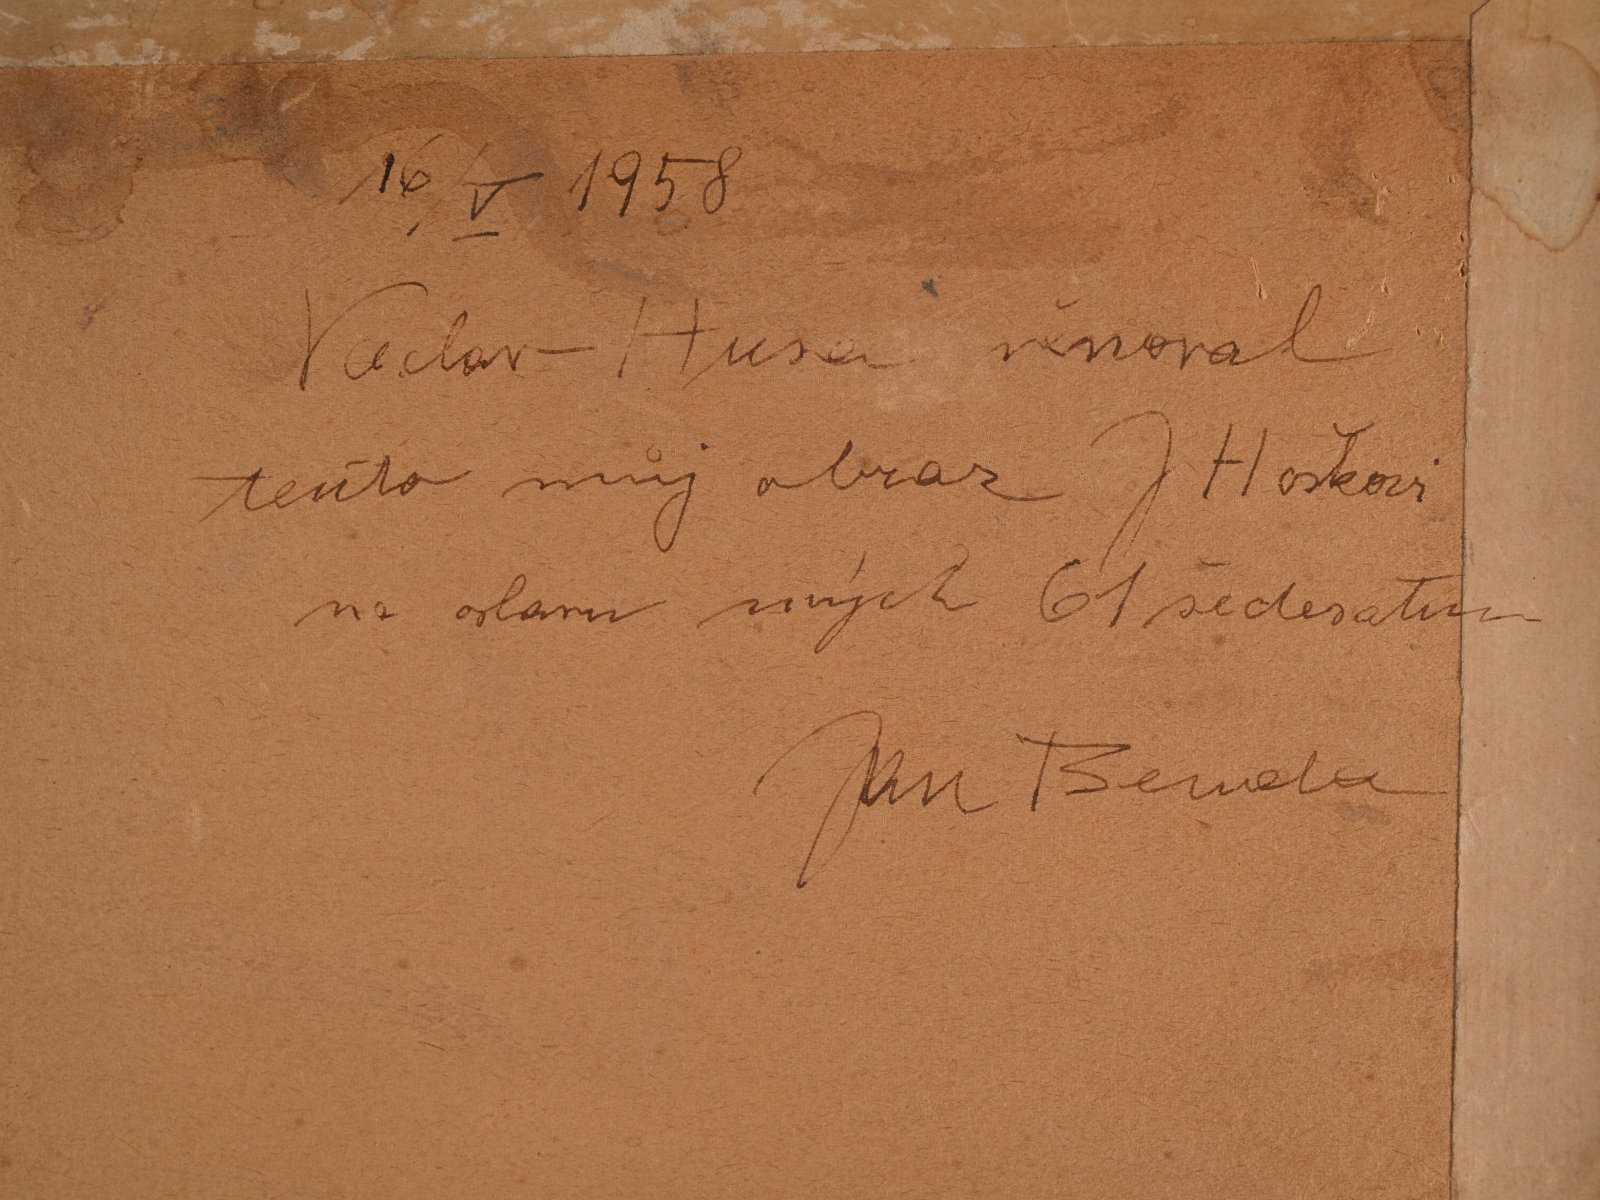 16/V 1958
Václav Husa věnoval
tento můj obraz J Hoškovi
na oslavu mých 61 šedesatin
Jan Benda